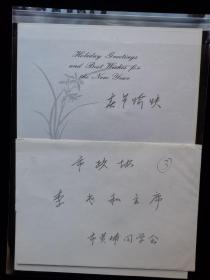 Holiday Greetings
and Best Wishes for
the New Year
春节愉快
市政协
③
李 主席
市黄埔同学会